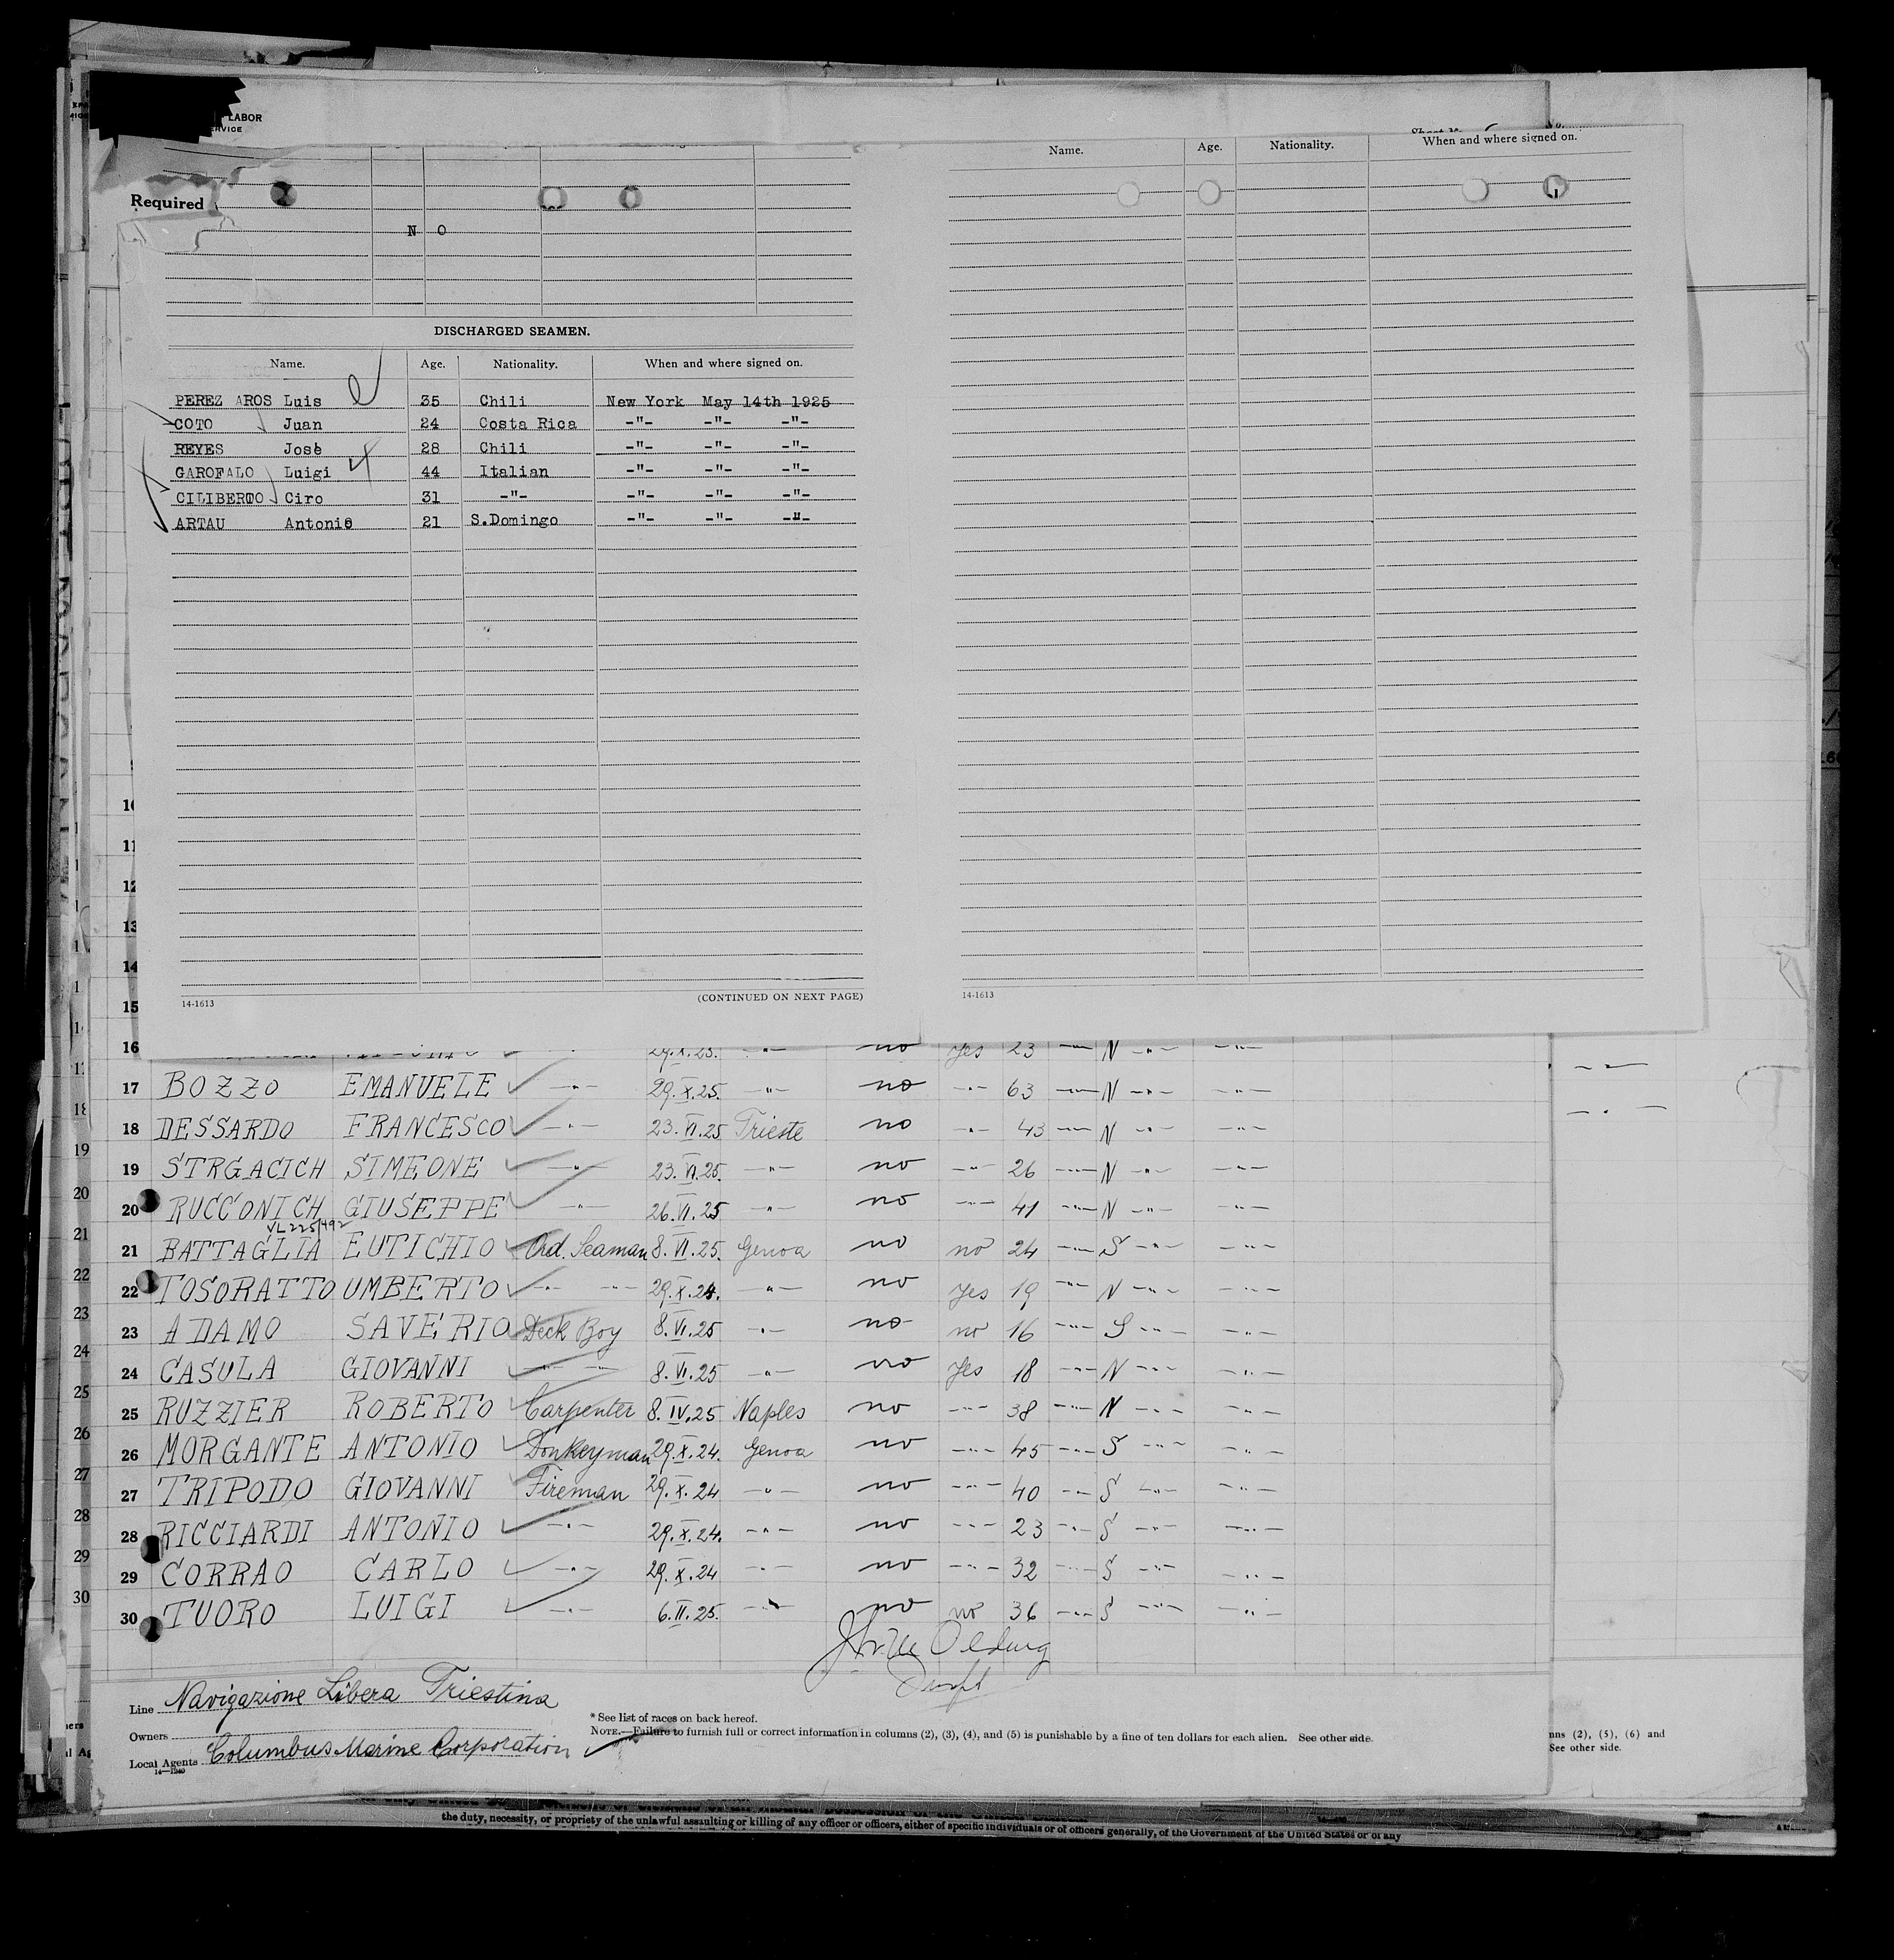 LABOR
Required
N O
DISCHARGED SEAMEN.
Name. Age. Nationality. When and where signed on.
PEREZ AROS Luis 35 Chili New York May 14th 1925
COTO Juan 24 Costa Rica -"- -"- -"-
REYES José 28 Chili -"- -"- -"-
GAROFALO Luigi 44 Italian -"- -"- -"-
CILIBERTO Ciro 31 -"- -"- -"- -"-
ARTAU Antonio 21 S.Domingo -"- -"- -"-
14-1613 (CONTINUED ON NEXT PAGE)
Name. Age. Nationality. When and where signed on.
14-1613
11
12
13
14
15
16 29.X.25. -"- no yes 23 -"- N -"- -"-
17 BOZZO EMANUELE -"- 29.X.25. -"- no -"- 63 -"- N -"- -"-
18 DESSARDO FRANCESCO -"- 23.VI.25 Trieste no -"- 43 -"- N -"- -"-
19 STRGACICH SIMEONE -"- 23.VI.25. -"- no -"- 26 -"- N -"- -"-
20 RUCCONICH GIUSEPPE -"- 26.VI.25 -"- no -"- 41 -"- N -"- -"-
VL225/492
21 BATTAGLIA EUTICHIO Ord. Seaman 8.VI.25. Genoa no no 24 -"- S -"- -"-
22 TOSORATTO UMBERTO -"- -"- 29.X.24. -"- no yes 19 -"- N -"- -"-
23 ADAMO SAVERIO Deck Boy 8.VI.25 -"- no no 16 -"- S -"- -"-
24 CASULA GIOVANNI -"- -"- 8.VI.25 -"- no yes 18 -"- N -"- -"-
25 RUZZIER ROBERTO Carpenter 8.IV.25 Naples no -"- 38 -"- N -"- -"-
26 MORGANTE ANTONIO Donkeyman 29.X.24. Genoa no -"- 45 -"- S -"- -"-
27 TRIPODO GIOVANNI Fireman 29.X.24 -"- no -"- 40 -"- S -"- -"-
28 RICCIARDI ANTONIO -"- 29.X.24. -"- no -"- 23 -"- S -"- -"-
29 CORRAO CARLO -"- 29.X.24 -"- no -"- 32 -"- S -"- -"-
30 TUORO LUIGI -"- 6.II.25. -"- no no 36 -"- S -"- -"-
Line Navigazione Libera Triestina
Owners
Local Agents Columbus Marine Corporation
14—1240
* See list of races on back hereof.
NOTE.—Failure to furnish full or correct information in columns (2), (3), (4), and (5) is punishable by a fine of ten dollars for each alien. See other side.
(2), (5), (6) and
See other side.
the duty, necessity, or propriety of the unlawful assaulting or killing of any officer or officers, either of specific individuals or of officers generally, of the Government of the United States or of any